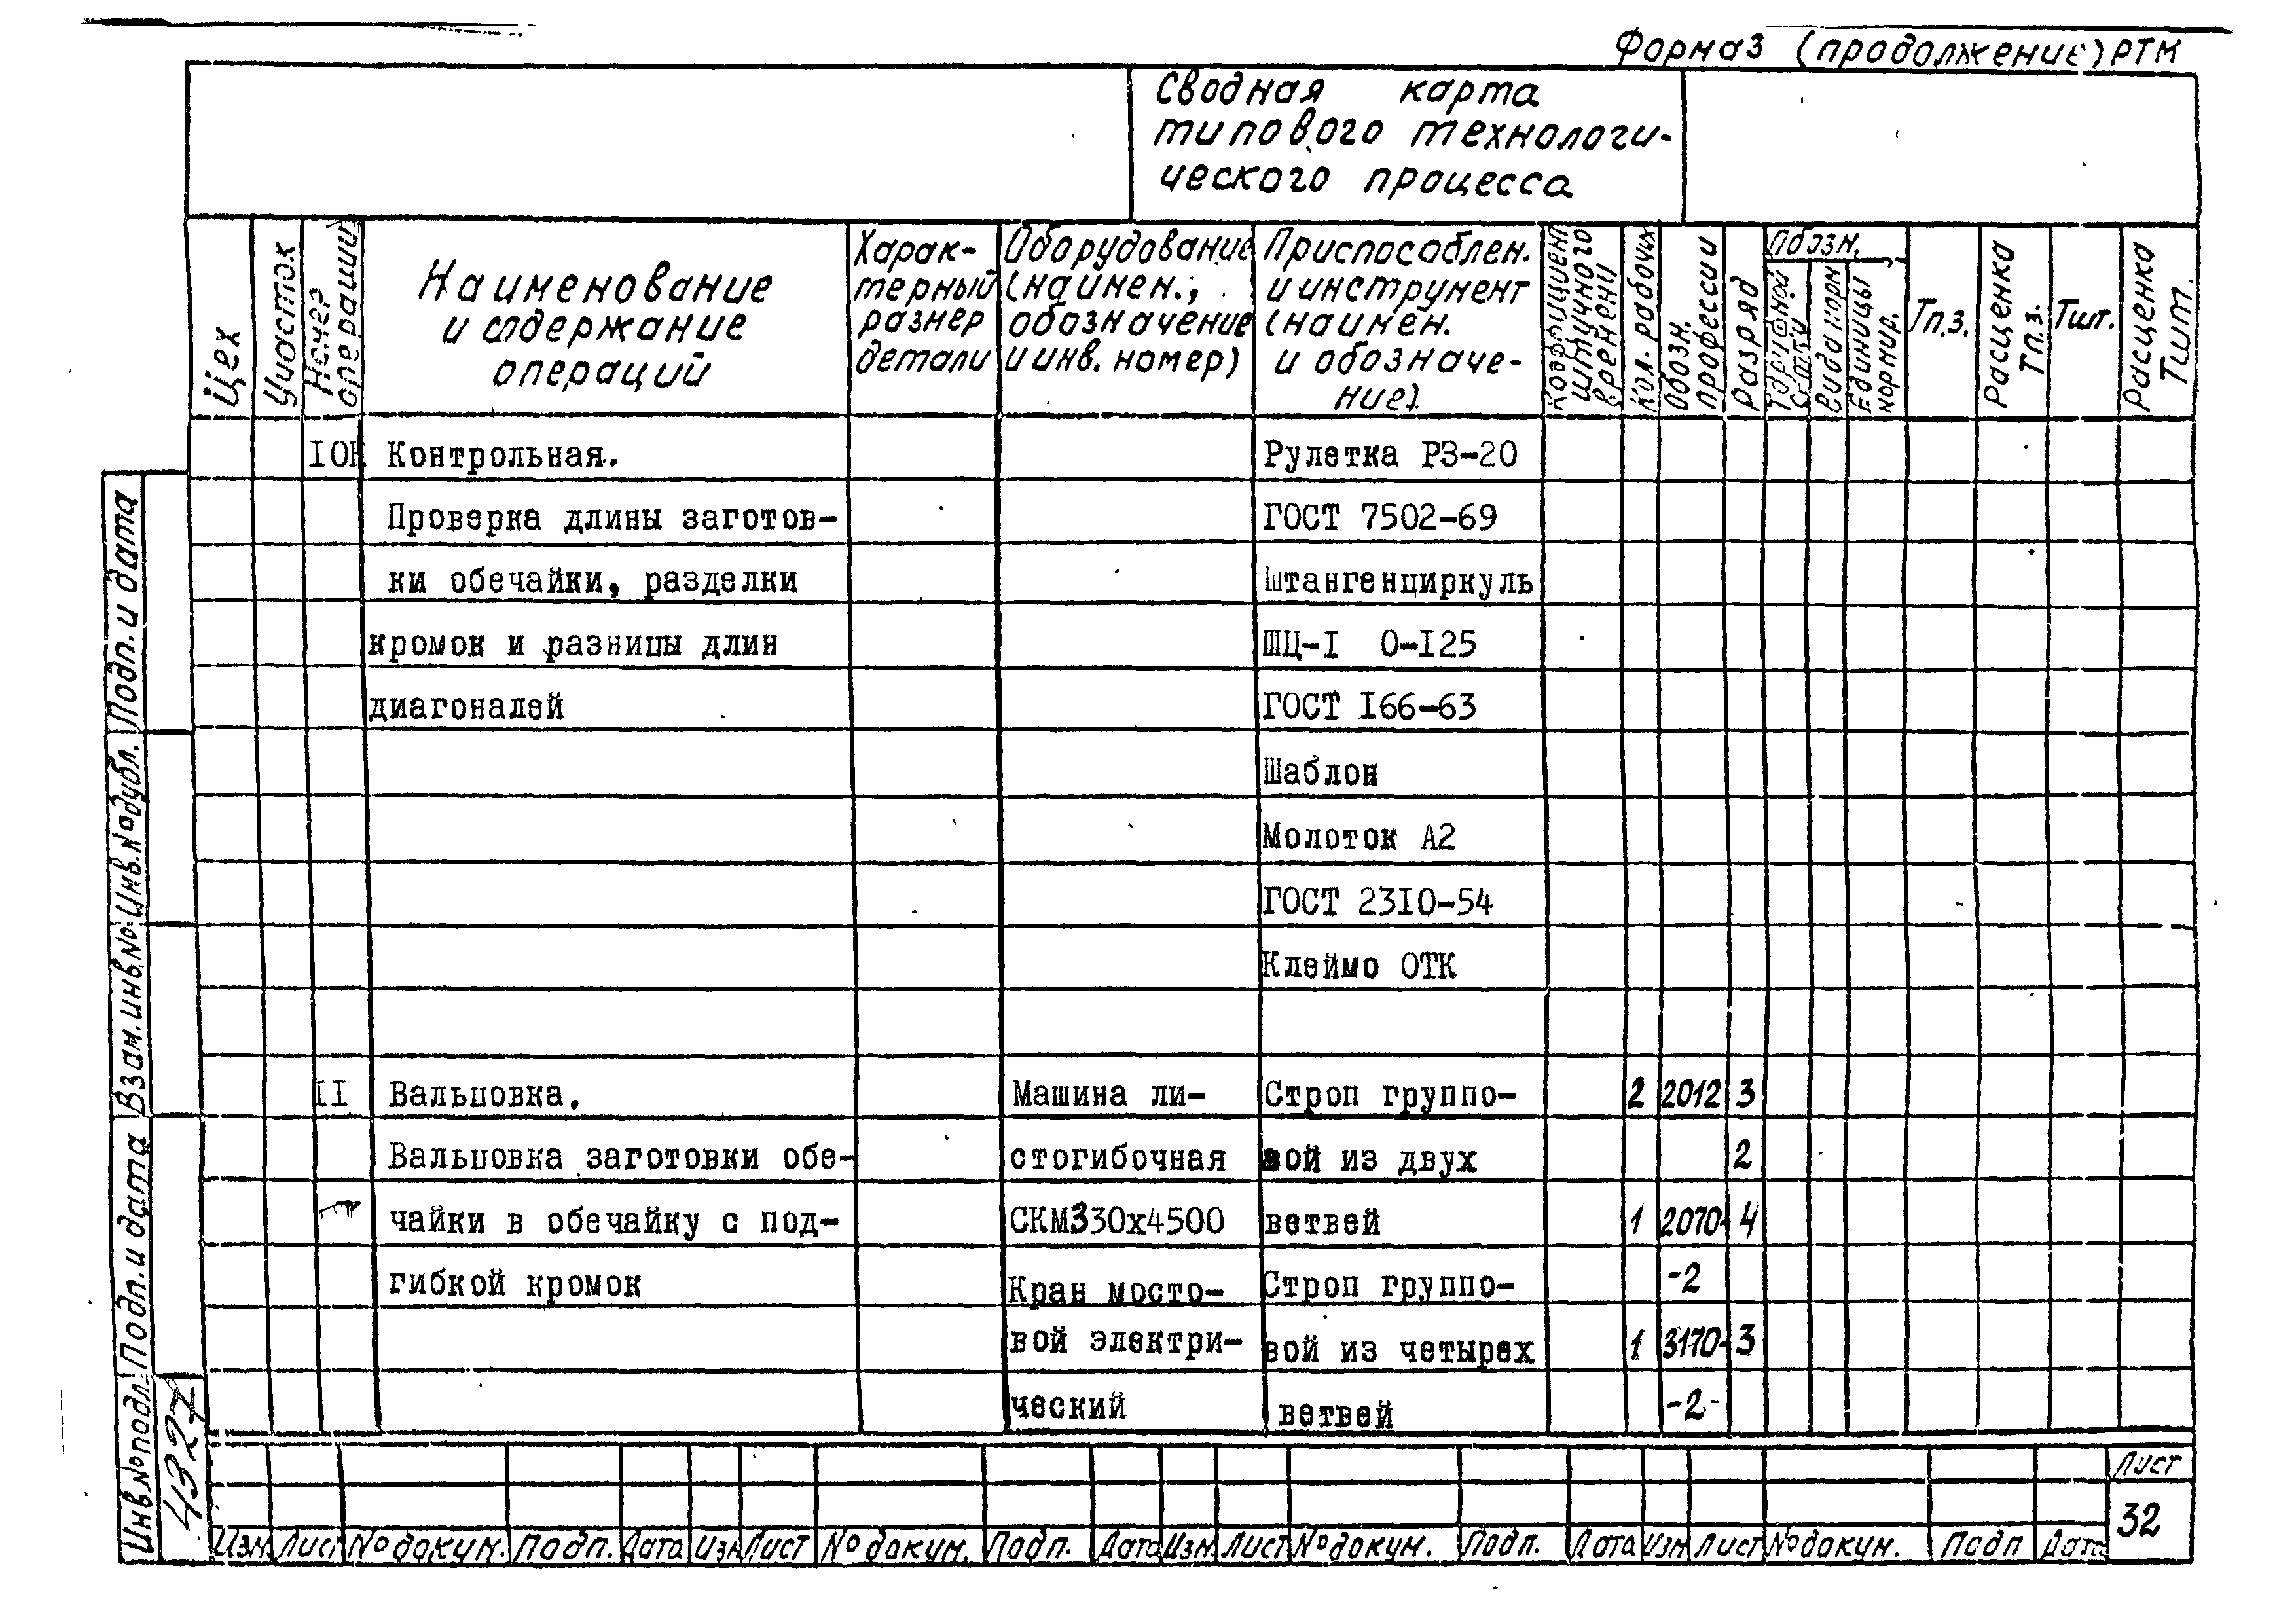 Форма3 (продолжение) РТМ
Сводная карта
типового технологи-
ческого процесса
Цех
Участок
Номер
операции
Наименование
и содержание
операций
Харак-
терный
размер
детали
Оборудование
(наимен.,
обозначение
и инв. номер)
Приспособлен.
и инструмент
(наимен.
и обозначе-
ние).
Коэффициент
штучного
времени
Кол. рабочих
Обозн.
профессии
Разряд
Обозн.
Тарифной
сетки
Вида норм
Единицы
нормир.
Тп.з.
Расценка
Тп.з.
Тшт.
Расценка
Тшт.
10К Контрольная. Рулетка РЗ-20
Проверка длины заготов- ГОСТ 7502-69
ки обечайки, разделки Штангенциркуль
кромок и разницы длин ШЦ-I 0-I25
диагоналей ГОСТ I66-63
Шаблон
Молоток А2
ГОСТ 23I0-54
Клеймо ОТК
II Вальцовка. Машина ли- Строп группо- 2 2012 3
Вальцовка заготовки обе- стогибочная вой из двух 2
чайки в обечайку с под- СКМ330х4500 ветвей 1 2070- 4
гибкой кромок Кран мосто- Строп группо- -2
вой электри- вой из четырех 1 3170- 3
ческий ветвей -2-
Подп. и дата
Инв.№дубл.
Взам.инв.№
Подп. и дата
Инв.№подл.
4327
Лист
32
Изм. Лист № докум. Подп. Дата Изм Лист № докум. Подп. Дата Изм Лист № докум. Подп. Дата Изм Лист № докум. Подп Дата